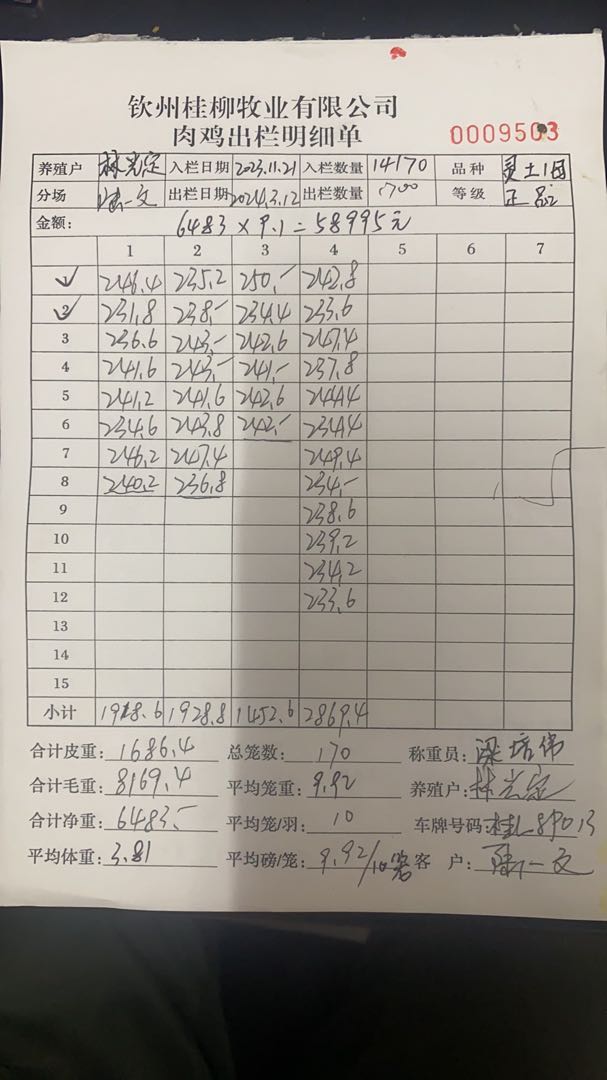 钦州桂柳牧业有限公司
肉鸡出栏明细单
0009503
养殖户 林光定 入栏日期 2023.11.21 入栏数量 14170 品种 灵土1母
分场 陆一文 出栏日期 2024.3.12 出栏数量 1700 等级 正品
金额: 6483 × 9.1 = 58995元
1 2 3 4 5 6 7
1 246.4 235.2 250.- 242.8
2 231.8 238.- 234.4 233.6
3 236.6 243.- 242.6 247.4
4 241.6 243.- 241.- 237.8
5 241.2 241.6 242.6 244.4
6 234.6 243.8 242.- 234.4
7 246.2 247.4 249.4
8 240.2 236.8 234.-
9 238.6
10 239.2
11 234.2
12 233.6
13
14
15
小计 1918.6 1928.8 1452.6 2869.4
合计皮重: 1686.4 总笼数: 170 称重员: 梁培伟
合计毛重: 8169.4 平均笼重: 9.92 养殖户: 林光定
合计净重: 6483.- 平均笼/羽: 10 车牌号码: 桂L89013
平均体重: 3.81 平均磅/笼: 9.92/10 客 户: 陆一文